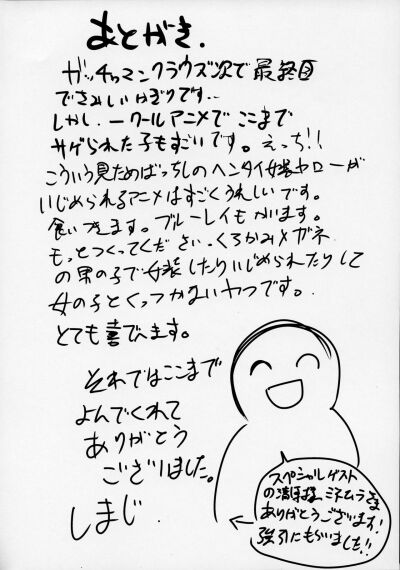 あとがき.
ガッチャマンクラウズ次で最終回
でさみしいかぎりです...
しかし.一クールアニメでここまで
サゲられた子もすごいです。えっち!!
こういう見ためばっちしのヘンタイ女装ヤローが
いじめられるアニメはすごくうれしいです。
食いつきます。ブルーレイもかいます。
もっとつくってください。くろかみメガネ
の男の子で女装したりいじめられたりして
女の子とくっつかないヤツです。
とても喜びます。
それではここまで
よんでくれて
ありがとう
ございました。
しまじ
スペシャルゲスト
の 様 ミネムラさま
ありがとうございます!
強引にもらいました!!